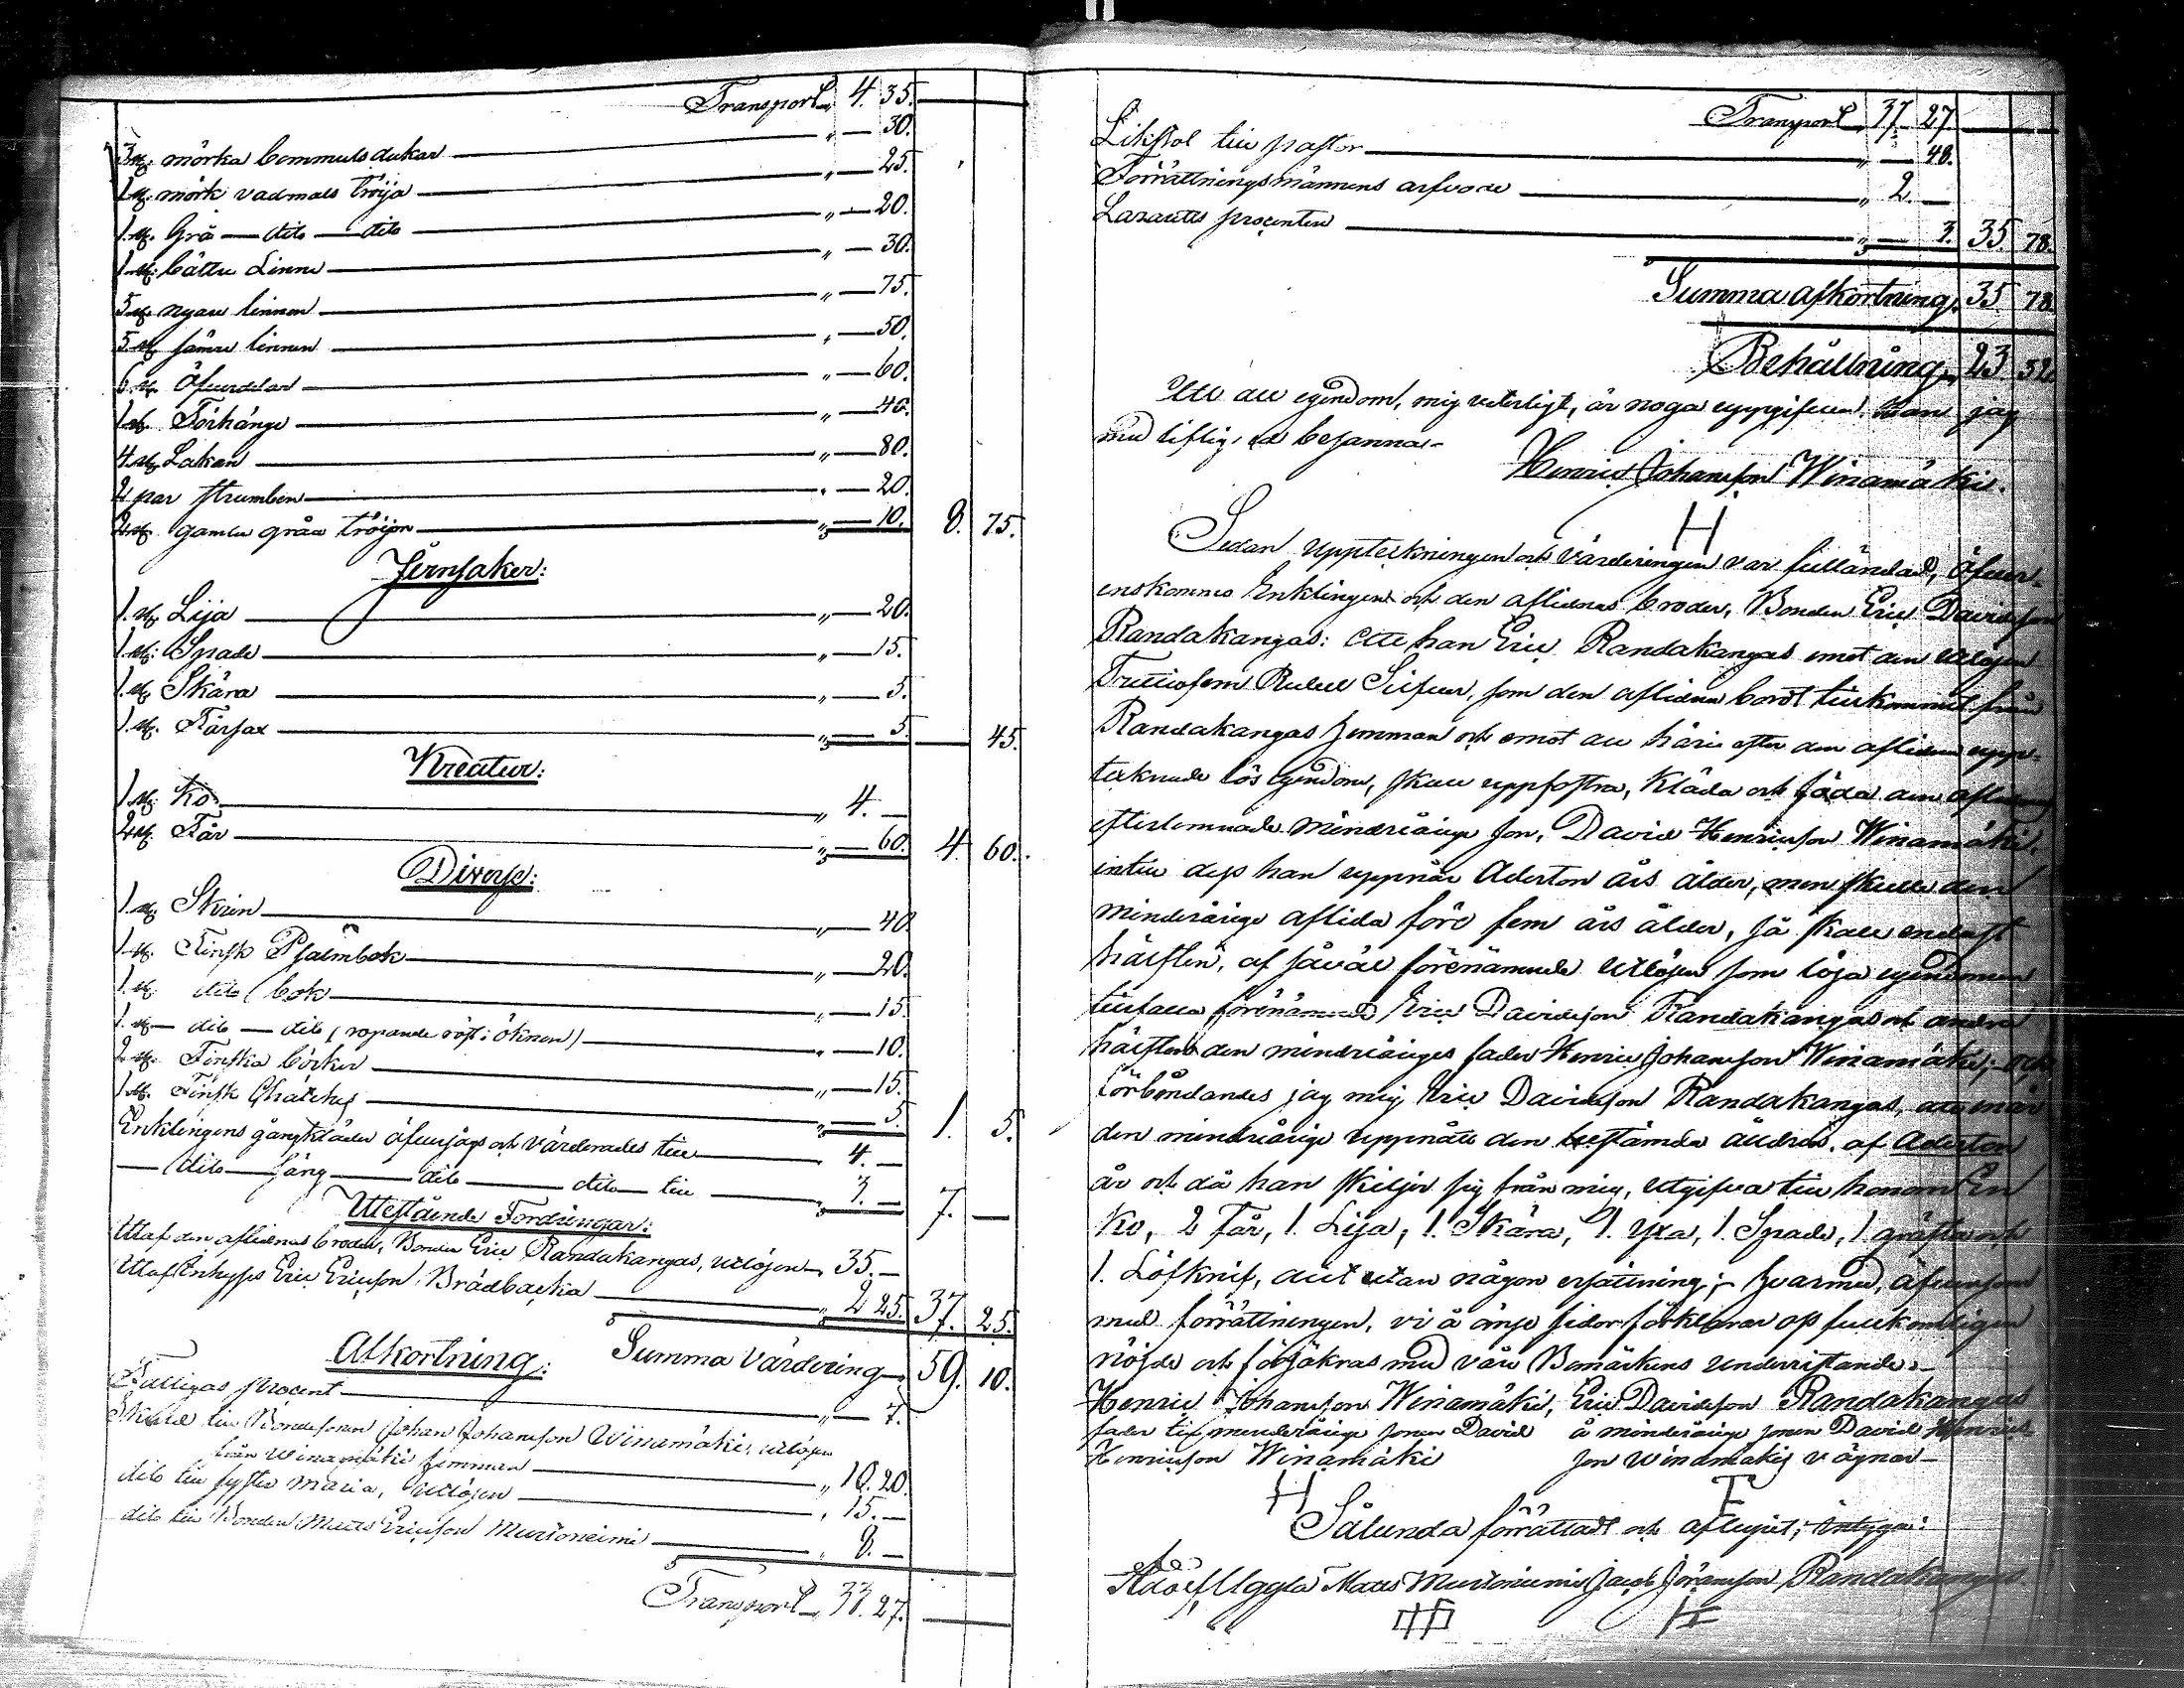 Transport „ 4. 35.
3 st. mörka bommulsdukar „ — 30.
1 st. mörk vadmals tröija „ — 25.
1. st. Grå — dito — dito „ — 20.
1 st. bättre Linne „ — 30.
5 st. nyare linnen „ — 75.
5. st. sämre linnen „ — 50.
6 st. Öfverdelar „ — 60.
1 st. Förhänge „ — 40.
4 st. Lakan „ — 80.
2 par strumben „ — 20.
2 st. gamla gråa tröijor „ — 10. 8. 75.
Jernsaker:
1. st. Lija „ — 20.
1 st. Spade „ — 15.
1. st. Skära „ — 5.
1. st. Fårsax „ — 5. — 45.
Kreatur:
1 st. Ko „ 4. —
2 st. Får „ — 60. 4. 60.
Diverse:
1. st. Skrin „ — 40
1 st. Finsk Psalmbok „ — 20.
1. st. dito bok „ — 15.
1. st — dito — dito (ropande röst i öknen) „ — 10.
2 st. Finska böcker „ — 15.
1 st. Finsk Chatehes „ — 5. 1. 5.
Enklingens gångkläder öfversågs och värderades till 4. —
— dito — säng — dito — dito — till „ 3. — 7. —
Utestående Fordringar:
Utaf den aflidnas broder, Bonden Eric Randakangas, utlösen „ 35. —
Utaf Inhyses Eric Ericsson Brädbacka „ 2 25. 37. 25.
Summa Värdering „ 59. 10.
Afkortning:
Fattigas procent „ — 7.
Skuld till Bondesonen Johan Johansson Winamäki, utlösen
från Winamäki hemman „ 10. 20.
dito till syster Maria, utlösen „ 15. —
dito till Bonden Matts Ericsson Murtoniemi „ 8. —
Transport „ 33. 27.
Transport „ 37 27
Likstol till pastor „ — 48.
Förrättningsmännens arfvode „ 2. —
Lazaretts procenten „ — 3. 35. 78.
Summa afkortning „ 35. 78
Behållning „ 23 32
Att all egendom, mig veterligt, är noga uppgifven, kan jag
med liflig ed besanna.
Henric Johansson Winamäki.
H
Sedan uppteckningen och Värderingen var fulländad, öfver-
enskommo Enklingen och den aflidnas broder, Bonden Eric Davidsson
Randakangas: att han Eric Randakangas emot den utlösen
Trettiofem Rubel Silfver, som den aflidna bordt tillkommit från
Randakangas hemman och emot all härei efter den aflidna upp-
tecknade lös egendom, skall uppfostra, kläda och föda den aflidnas
efterlemnade minderårige son, David Henricsson Winamäki,
intill dess han uppnår Aderton års ålder, men skulle den
minderårige aflida före fem års ålder, så skall endast
hälften, af såväl förenämnde utlösen som lösa egendomen
tillfalla förenämnde Eric Davidsson Randakangas och andra
hälften den minderåriges fader Henric Johansson Winamäki; och
förbindandes jag mig Eric Davidsson Randakangas, att när
den minderårige uppnått den bestämda åldren af Aderton
år och då han skiljer sig från mig, utgifva till honom En
Ko, 2 Får, 1. Lija, 1. Skära, 1. yxa, 1. Spade, 1 gräfta och
1. Löfknif, allt utan någon ersättning; hvarmed, äfvensom
med förrättningen, vi å ömse sidor förklarar oss fullkomligen
nöjde och försäkras med våre Bomärkens underristande.
Henric Johansson Winamäki, Eric Davidsson Randakangas
fader till minderårige sonen David å minderårige sonen David Henrics-
Henricsson Winamäki son Winamäkis vägnar
H F
Sålunda förrättadt och aflupit; intyga:
Adolf Uggla Matts Murtoniemi Jacob Jöransson Randakangas